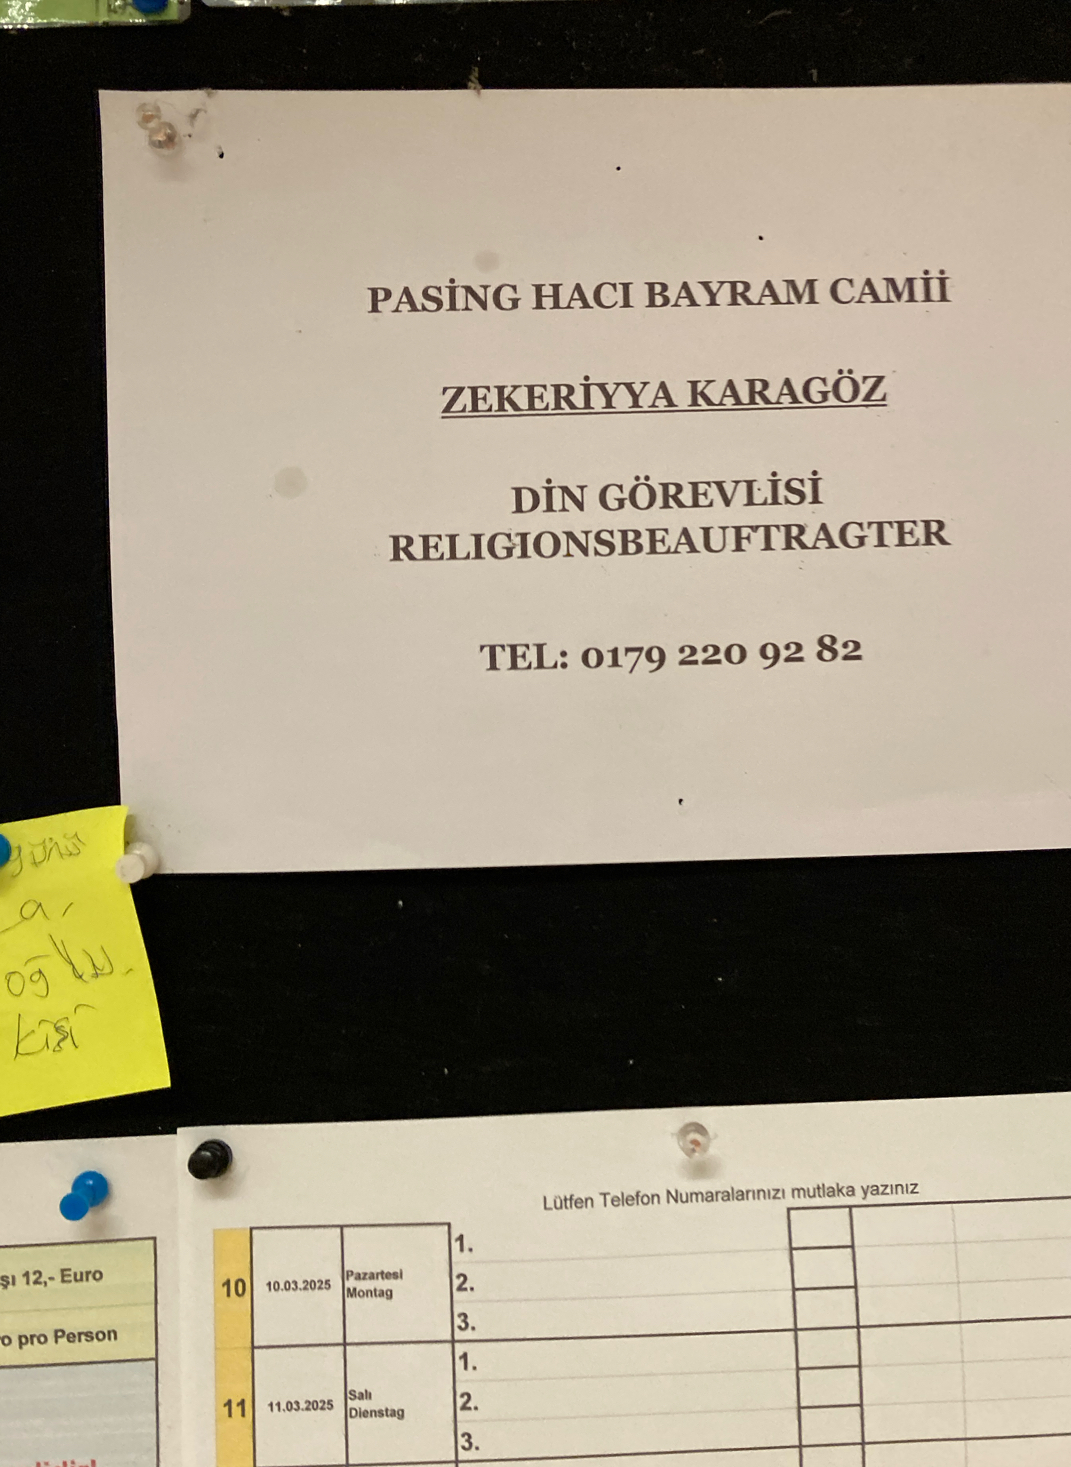 PASİNG HACI BAYRAM CAMİİ
ZEKERİYYA KARAGÖZ
DİN GÖREVLİSİ
RELIGIONSBEAUFTRAGTER
TEL: 0179 220 92 82
kişi
şı 12,- Euro
o pro Person
Lütfen Telefon Numaralarınızı mutlaka yazınız
10 10.03.2025 Pazartesi Montag
1.
2.
3.
11 11.03.2025 Salı Dienstag
1.
2.
3.